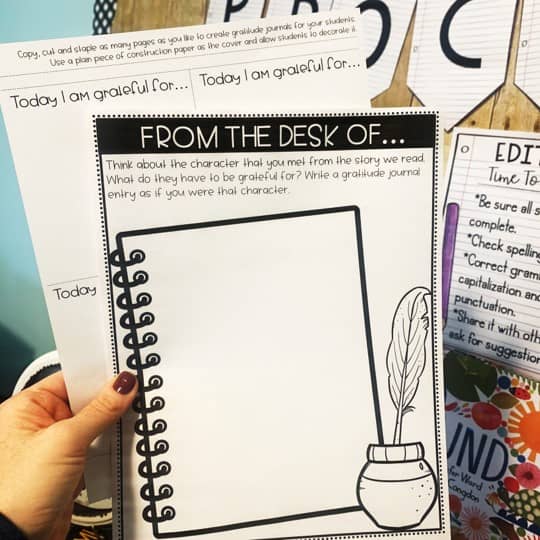 Copy, cut and staple as many pages as you like to create gratitude journals for your students.
Use a plain piece of construction paper as the cover and allow students to decorate it.
Today I am grateful for...
Today I am grateful for...
Today
FROM THE DESK OF...
Think about the character that you met from the story we read.
What do they have to be grateful for? Write a gratitude journal
entry as if you were that character.
P R O C
EDIT
Time To
*Be sure all s
complete.
*Check spelling
*Correct gram
capitalization and
punctuation.
*Share it with oth
ask for suggestion
UND
fer Ward
Congdon